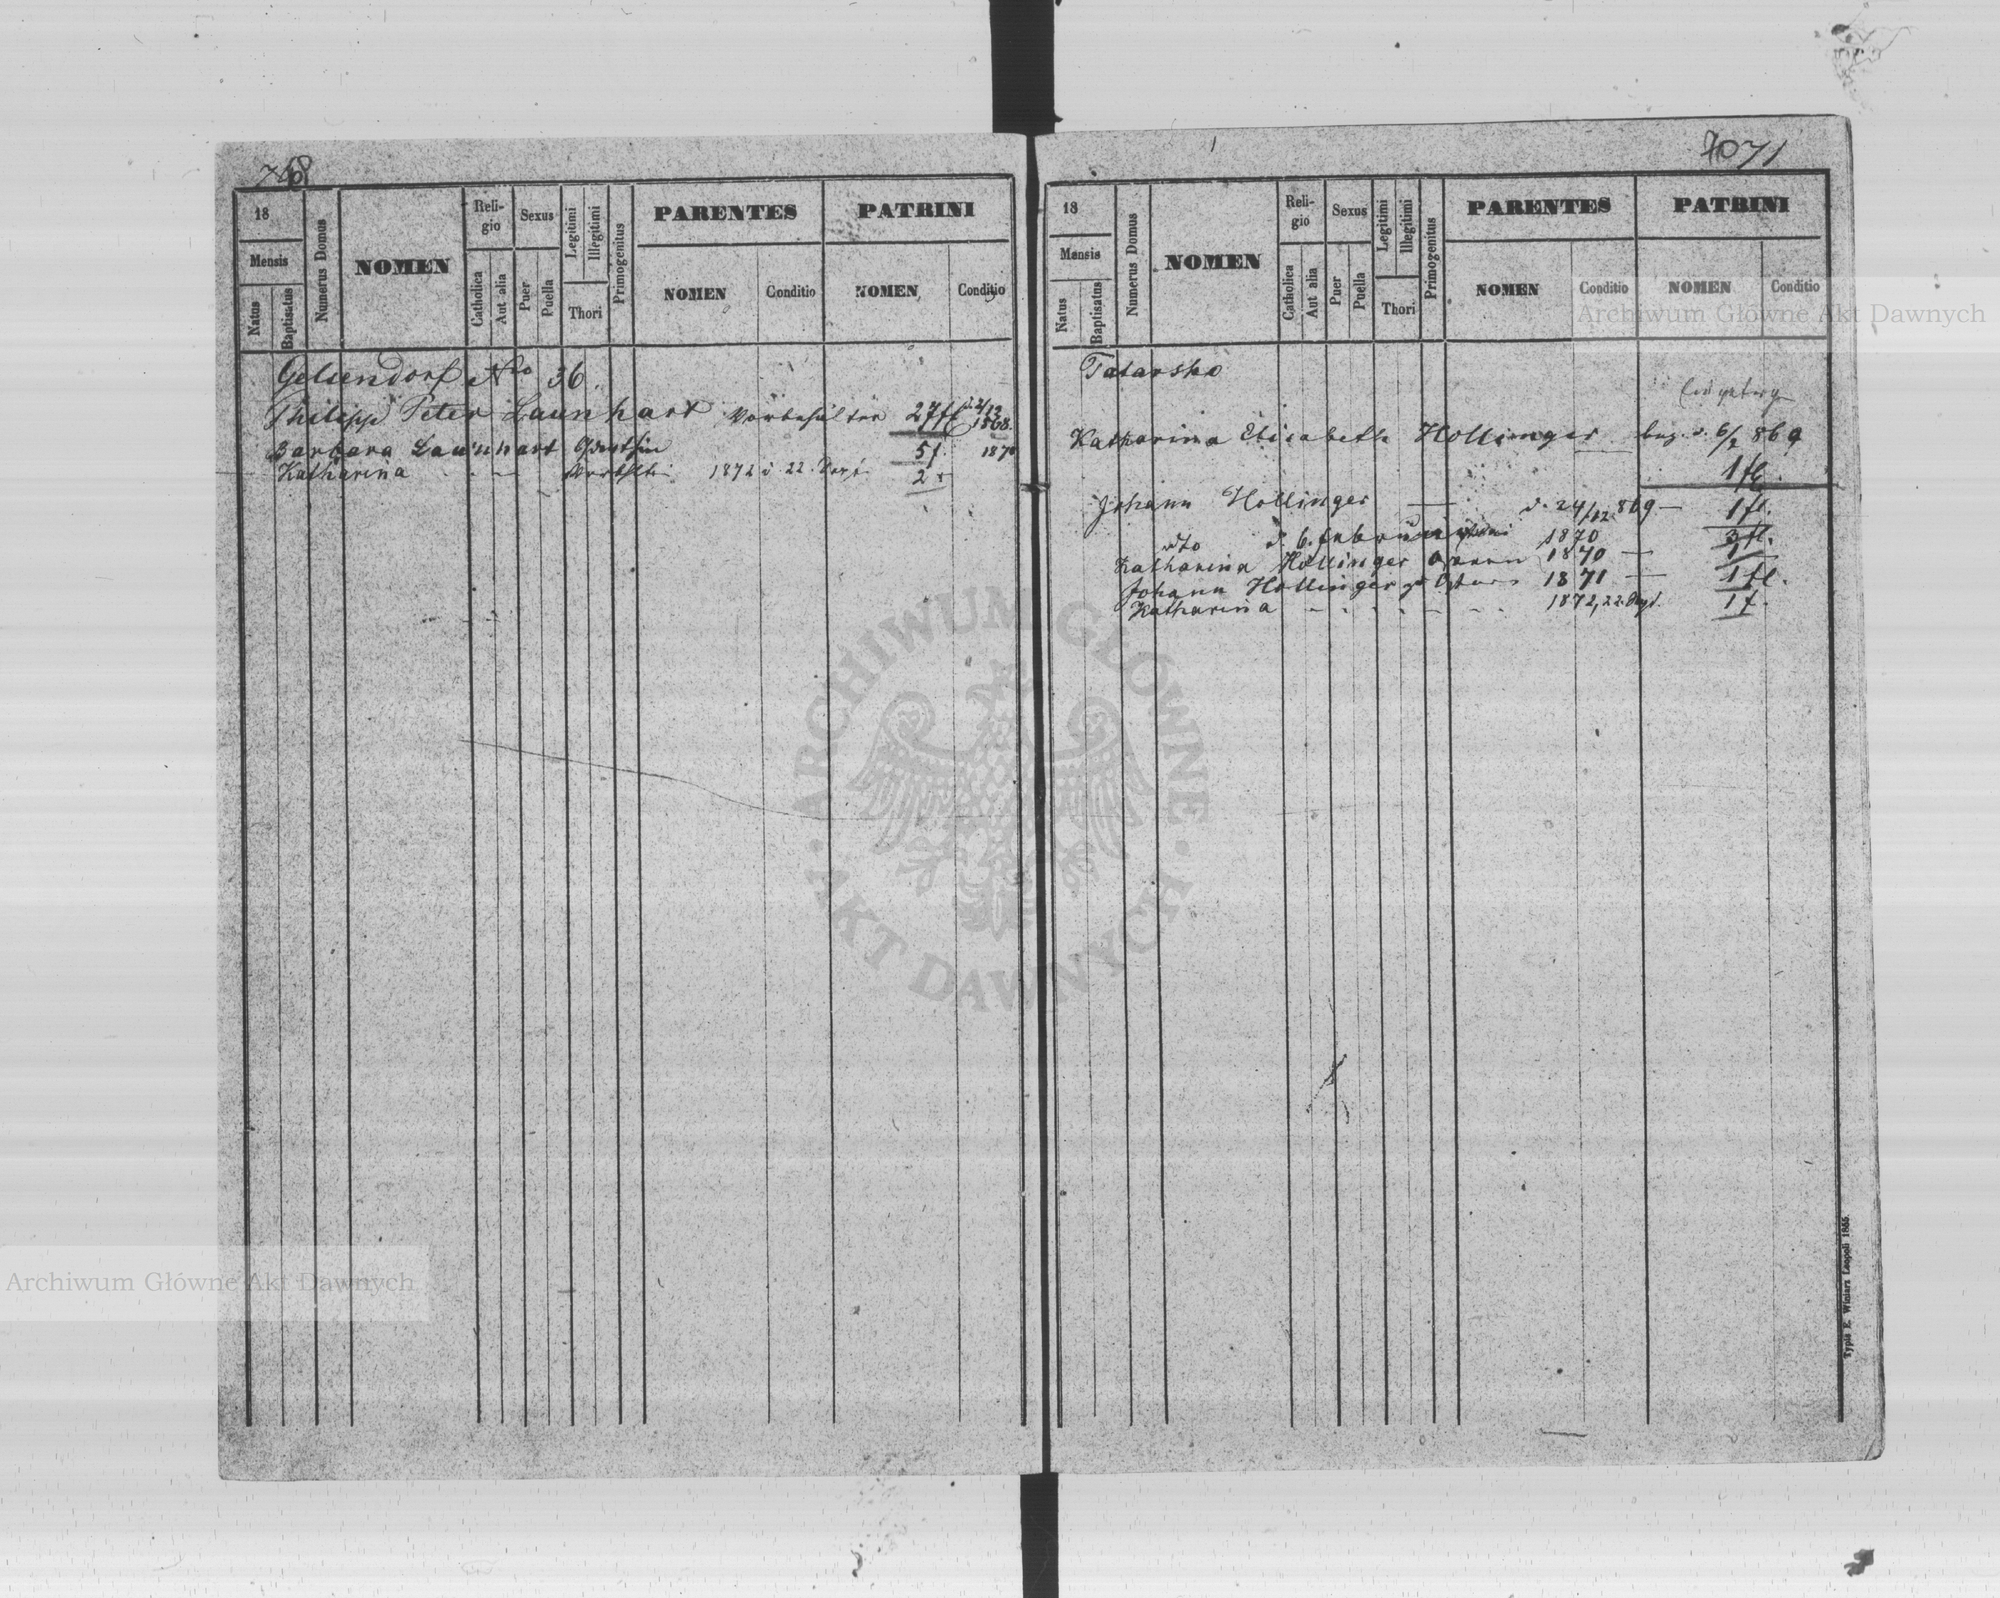 768
18
Mensis
Natus
Baptisatus
Numerus Domus
NOMEN
Religio
Catholica
Aut alia
Sexus
Puer
Puella
Legitimi
Illegitimi
Thori
Primogenitus
PARENTES
NOMEN
Conditio
PATRINI
NOMEN
Conditio
Gelsendorf Nro 36.
Philipp Peter Launhart 27 fl 1868.
Barbara Launhart 5 f. 1870
Katharina - - 1872 d 22. 2
7071
18
Mensis
Natus
Baptisatus
Numerus Domus
NOMEN
Religio
Catholica
Aut alia
Sexus
Puer
Puella
Legitimi
Illegitimi
Thori
Primogenitus
PARENTES
NOMEN
Conditio
PATRINI
NOMEN
Conditio
Tatarsko
Katharina Elisabeth Hollinger 6/2 869
1 fl.
Johann Hollinger — d. 24/12 869 — 1 fl.
dto d. 6. Februar 1870 3 fl.
Katharina Hollinger 1870 —
Johann Hollinger 1871 — 1 fl.
Katharina - - - - - - 1872, 22. 1 f.
Typis E. Winiarz Leopoli 1866.
Archiwum Główne Akt Dawnych
ARCHIWUM GŁÓWNE · AKT DAWNYCH ·
Archiwum Główne Akt Dawnych